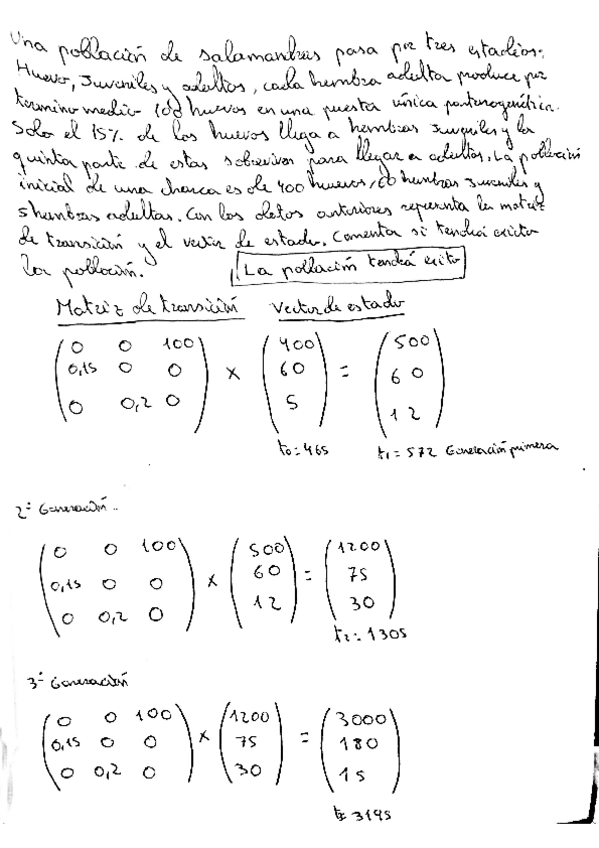 Una población de salamandras pasa por tres estadios:
Huevo, Juveniles y adultos, cada hembra adulta produce por
termino medio 100 huevos en una puesta única partenogenética.
Solo el 15% de los huevos llega a hembras Juveniles y la
quinta parte de estas sobrevive para llegar a adultos. La población
inicial de una charca es de 400 huevos, 60 hembras Juveniles y
5 hembras adultas. Con los datos anteriores representa la matriz
de transición y el vector de estado. Comenta si tendrá exito
la población. La población tendrá exito
Matriz de transición Vector de estado
0 0 100 400 500
0,15 0 0 × 60 = 60
0 0,2 0 5 12
t0 = 465 t1 = 572 Generación primera
2ª Generación
0 0 100 500 1200
0,15 0 0 × 60 = 75
0 0,2 0 12 30
t2 = 1305
3ª Generación
0 0 100 1200 3000
0,15 0 0 × 75 = 180
0 0,2 0 30 15
t = 3195